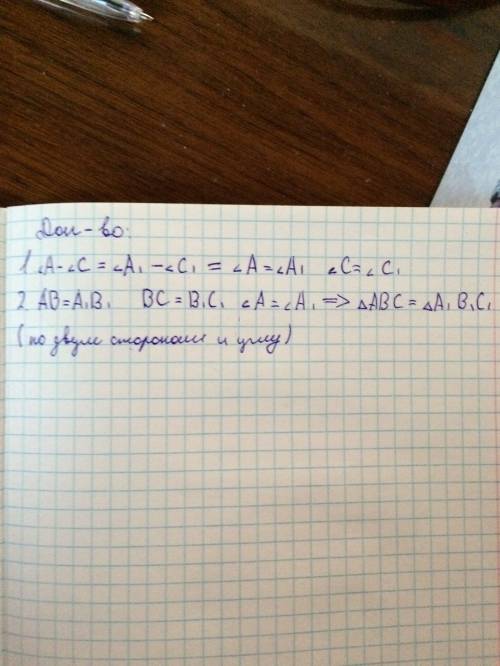 Док-во:
1 ∠A-∠C = ∠A₁-∠C₁ = ∠A=∠A₁ ∠C=∠C₁
2 AB=A₁B₁ BC=B₁C₁ ∠A=∠A₁ => △ABC=△A₁B₁C₁
(по двум сторонам и углу)